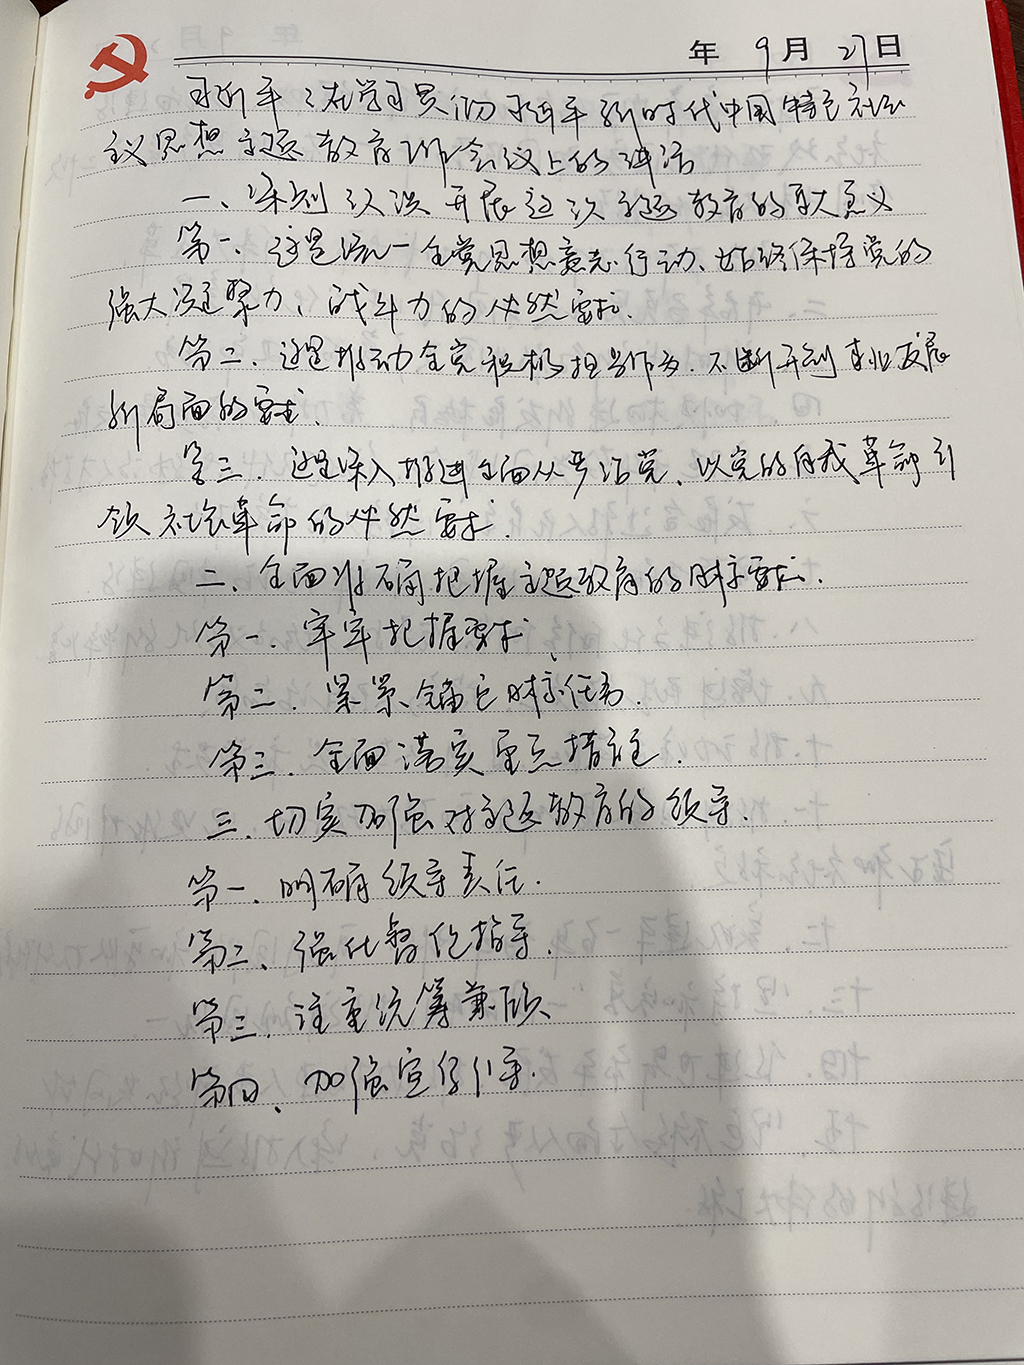 年 9月 27日
习近平:在学习贯彻习近平新时代中国特色社会
主义思想主题教育工作会议上的讲话
一、深刻认识开展这次主题教育的重大意义
第一、这是统一全党思想意志行动、始终保持党的
强大凝聚力、战斗力的必然要求.
第二.这是推动全党积极担当作为.不断开创事业发展
新局面的要求.
第三.这是深入推进全面从严治党、以党的自我革命引
领社会革命的必然要求.
二、全面准确把握主题教育的目标要求.
第一.牢牢把握要求、
第二.紧紧锚定目标任务.
第三.全面落实重点措施.
三.切实加强对主题教育的领导.
第一.明确领导责任.
第二、强化督促指导.
第三.注重统筹兼顾、
第四、加强宣传引导.